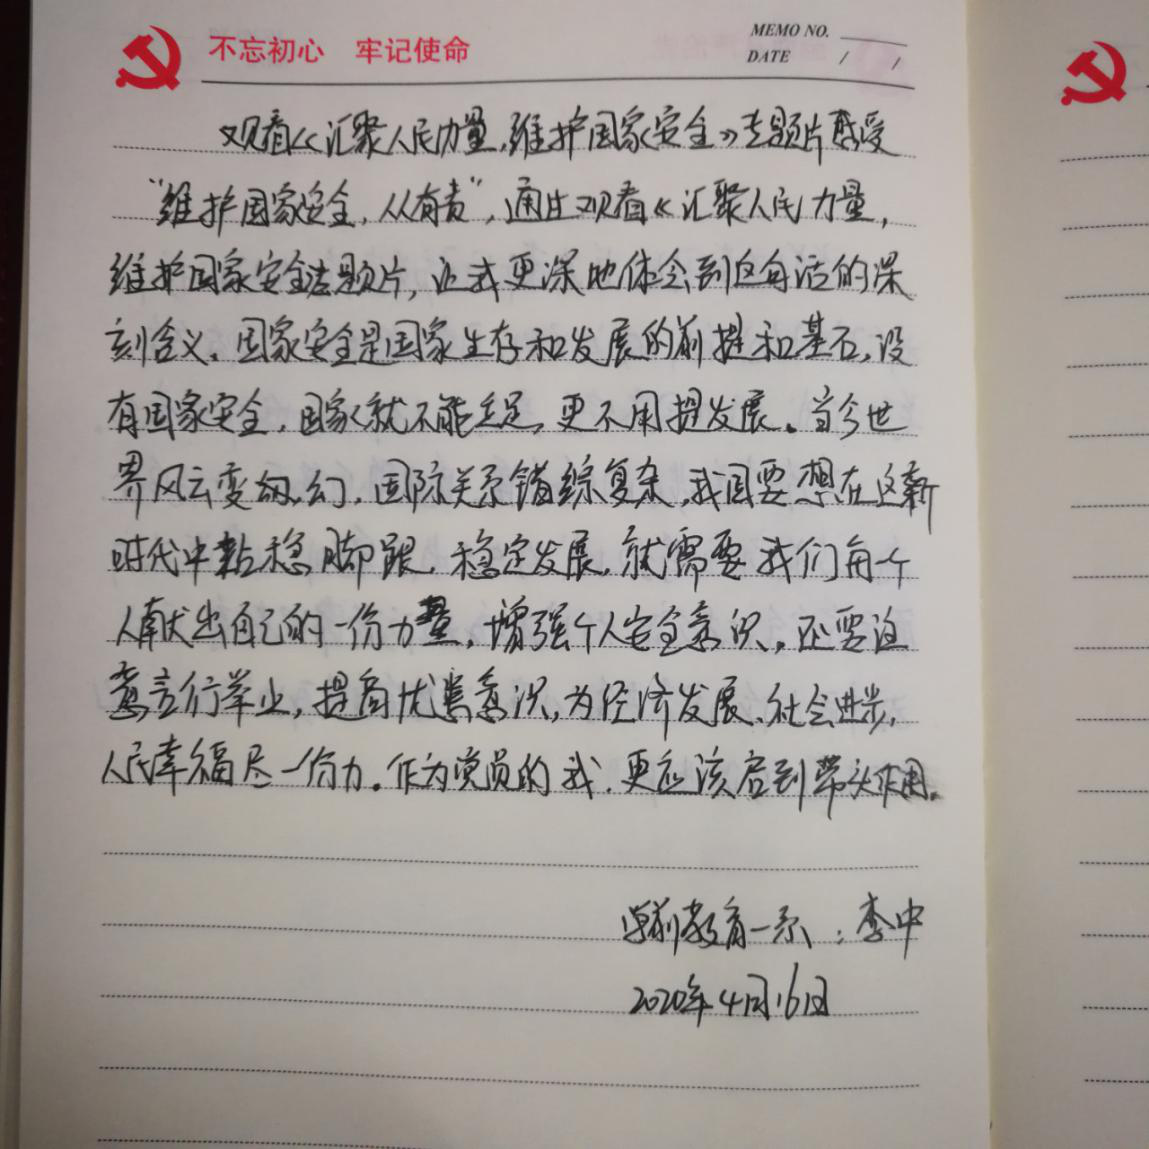 不忘初心 牢记使命
MEMO NO.
DATE / /
观看《汇聚人民力量,维护国家安全》专题片感受
"维护国家安全,人人有责",通过观看《汇聚人民力量,
维护国家安全》专题片,让我更深地体会到这句话的深
刻含义。国家安全是国家生存和发展的前提和基石,没
有国家安全,国家就不能立足,更不用提发展。当今世
界风云变幻,幻,国际关系错综复杂,我国要想在这新
时代中粘稳脚跟,稳定发展,就需要我们每一个
人献出自己的一份力量,增强个人安全意识,还要注
意言行举止,提高忧患意识,为经济发展、社会进步,
人民幸福尽一份力。作为党员的我,更应该启到带头作用。
学前教育一系:李中
2020年4月16日